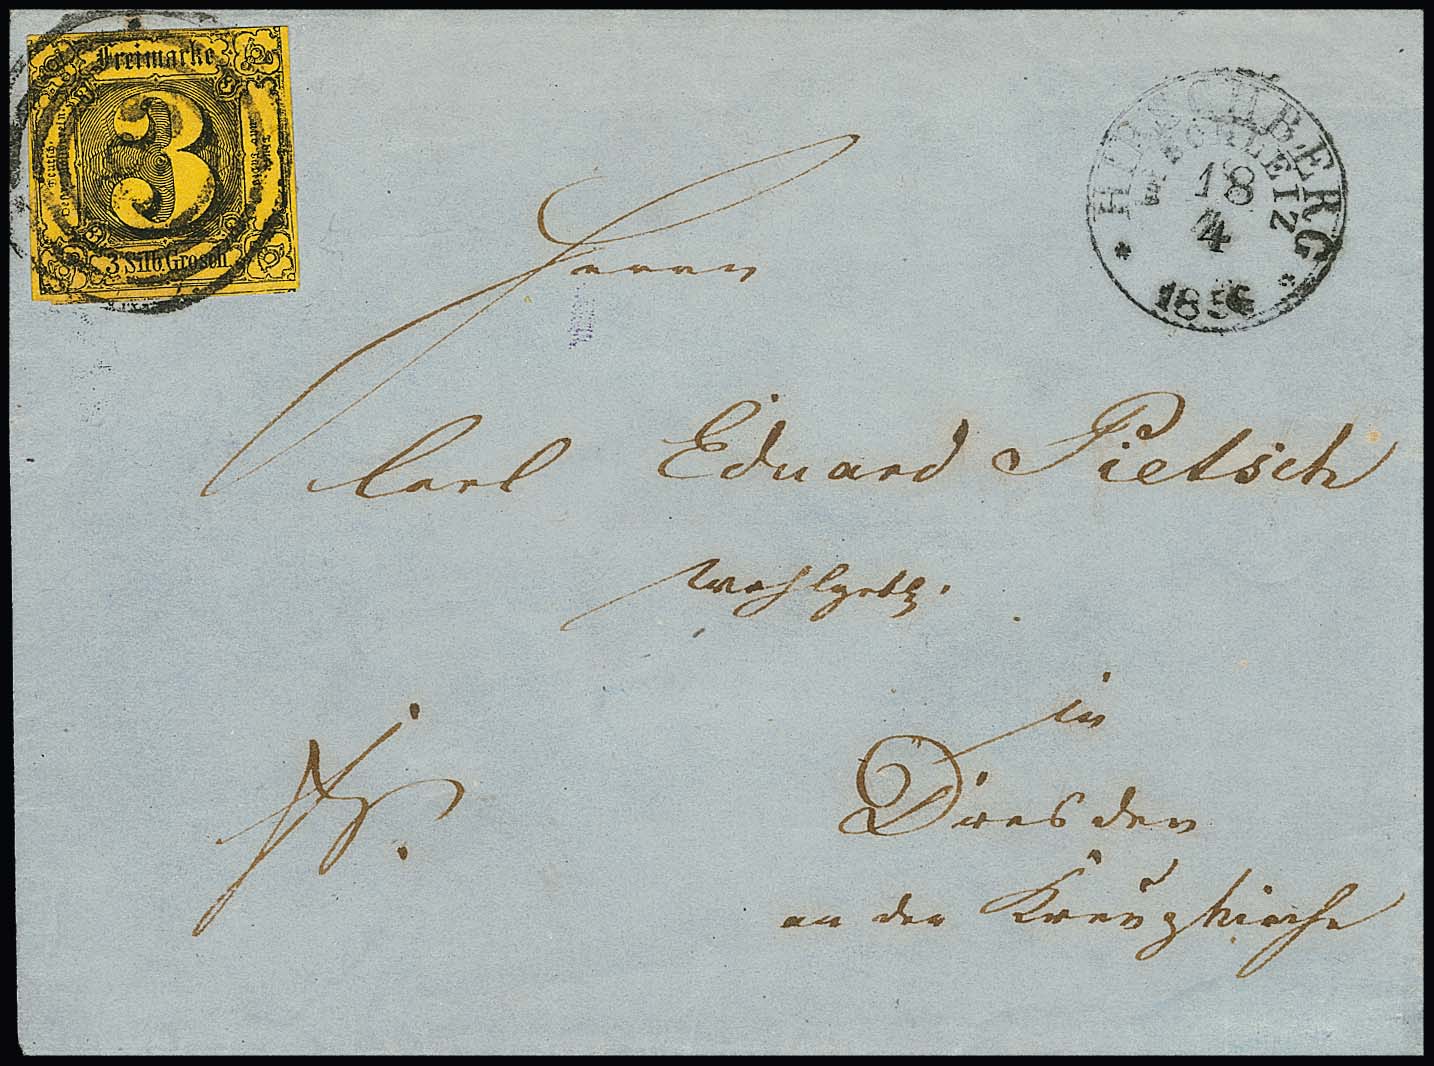 Freimarke
3
3 Silb. Grosch
HIRSCHBERG
B. SCHLEIZ
18
4
1856
Herrn
Carl Eduard Pietsch
Wohlgeb.
in
Dresden
an der Kreuzkirche
fr.